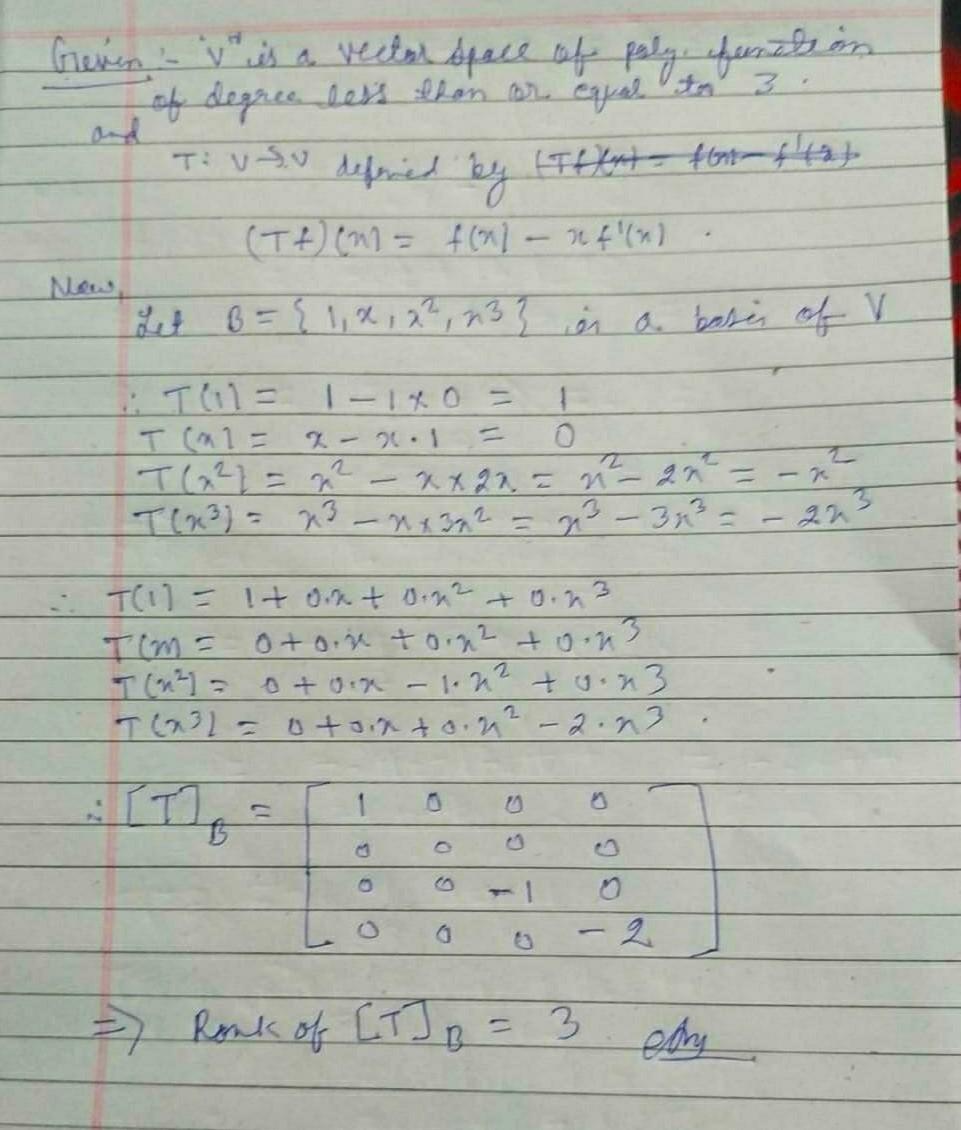 Given :- "V" is a vector space of poly. function
of degree less than or equal to 3.
and
T: V→V defined by (Tf)(x) = f(x) - f'(x).
(Tf)(x) = f(x) - x f'(x).
Now,
Let B = {1, x, x², x³} is a basis of V
∴ T(1) = 1 - 1×0 = 1
T(x) = x - x·1 = 0
T(x²) = x² - x×2x = x² - 2x² = -x²
T(x³) = x³ - x×3x² = x³ - 3x³ = -2x³
∴ T(1) = 1 + 0·x + 0·x² + 0·x³
T(x) = 0 + 0·x + 0·x² + 0·x³
T(x²) = 0 + 0·x - 1·x² + 0·x³
T(x³) = 0 + 0·x + 0·x² - 2·x³.
∴ [T]_B = [ 1 0 0 0
0 0 0 0
0 0 -1 0
0 0 0 -2 ]
⇒ Rank of [T]_B = 3